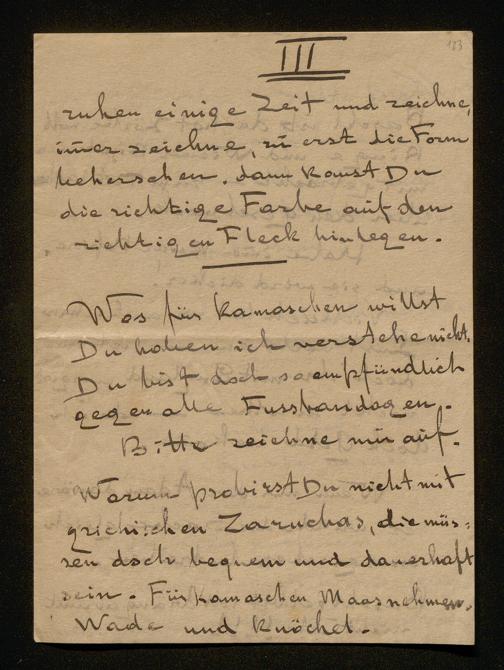 III
183
ruhen einige Zeit und zeichne,
im̄er zeichne, zu erst die Form
beherschen. dann kan̄st Du
die richtige Farbe auf den
richtigen Fleck hinlegen.
Was für Kamaschen willst
Du haben ich verstehe nicht.
Du bist doch so empfindlich
gegen alle Fussbandagen.
Bitte zeichne mir auf.
Warum probirst Du nicht mit
grichischen Zaruchas, die müs-
sen doch bequem und dauerhaft
sein. Für Kamaschen Maasnehmen.
Wade und Knöchel.